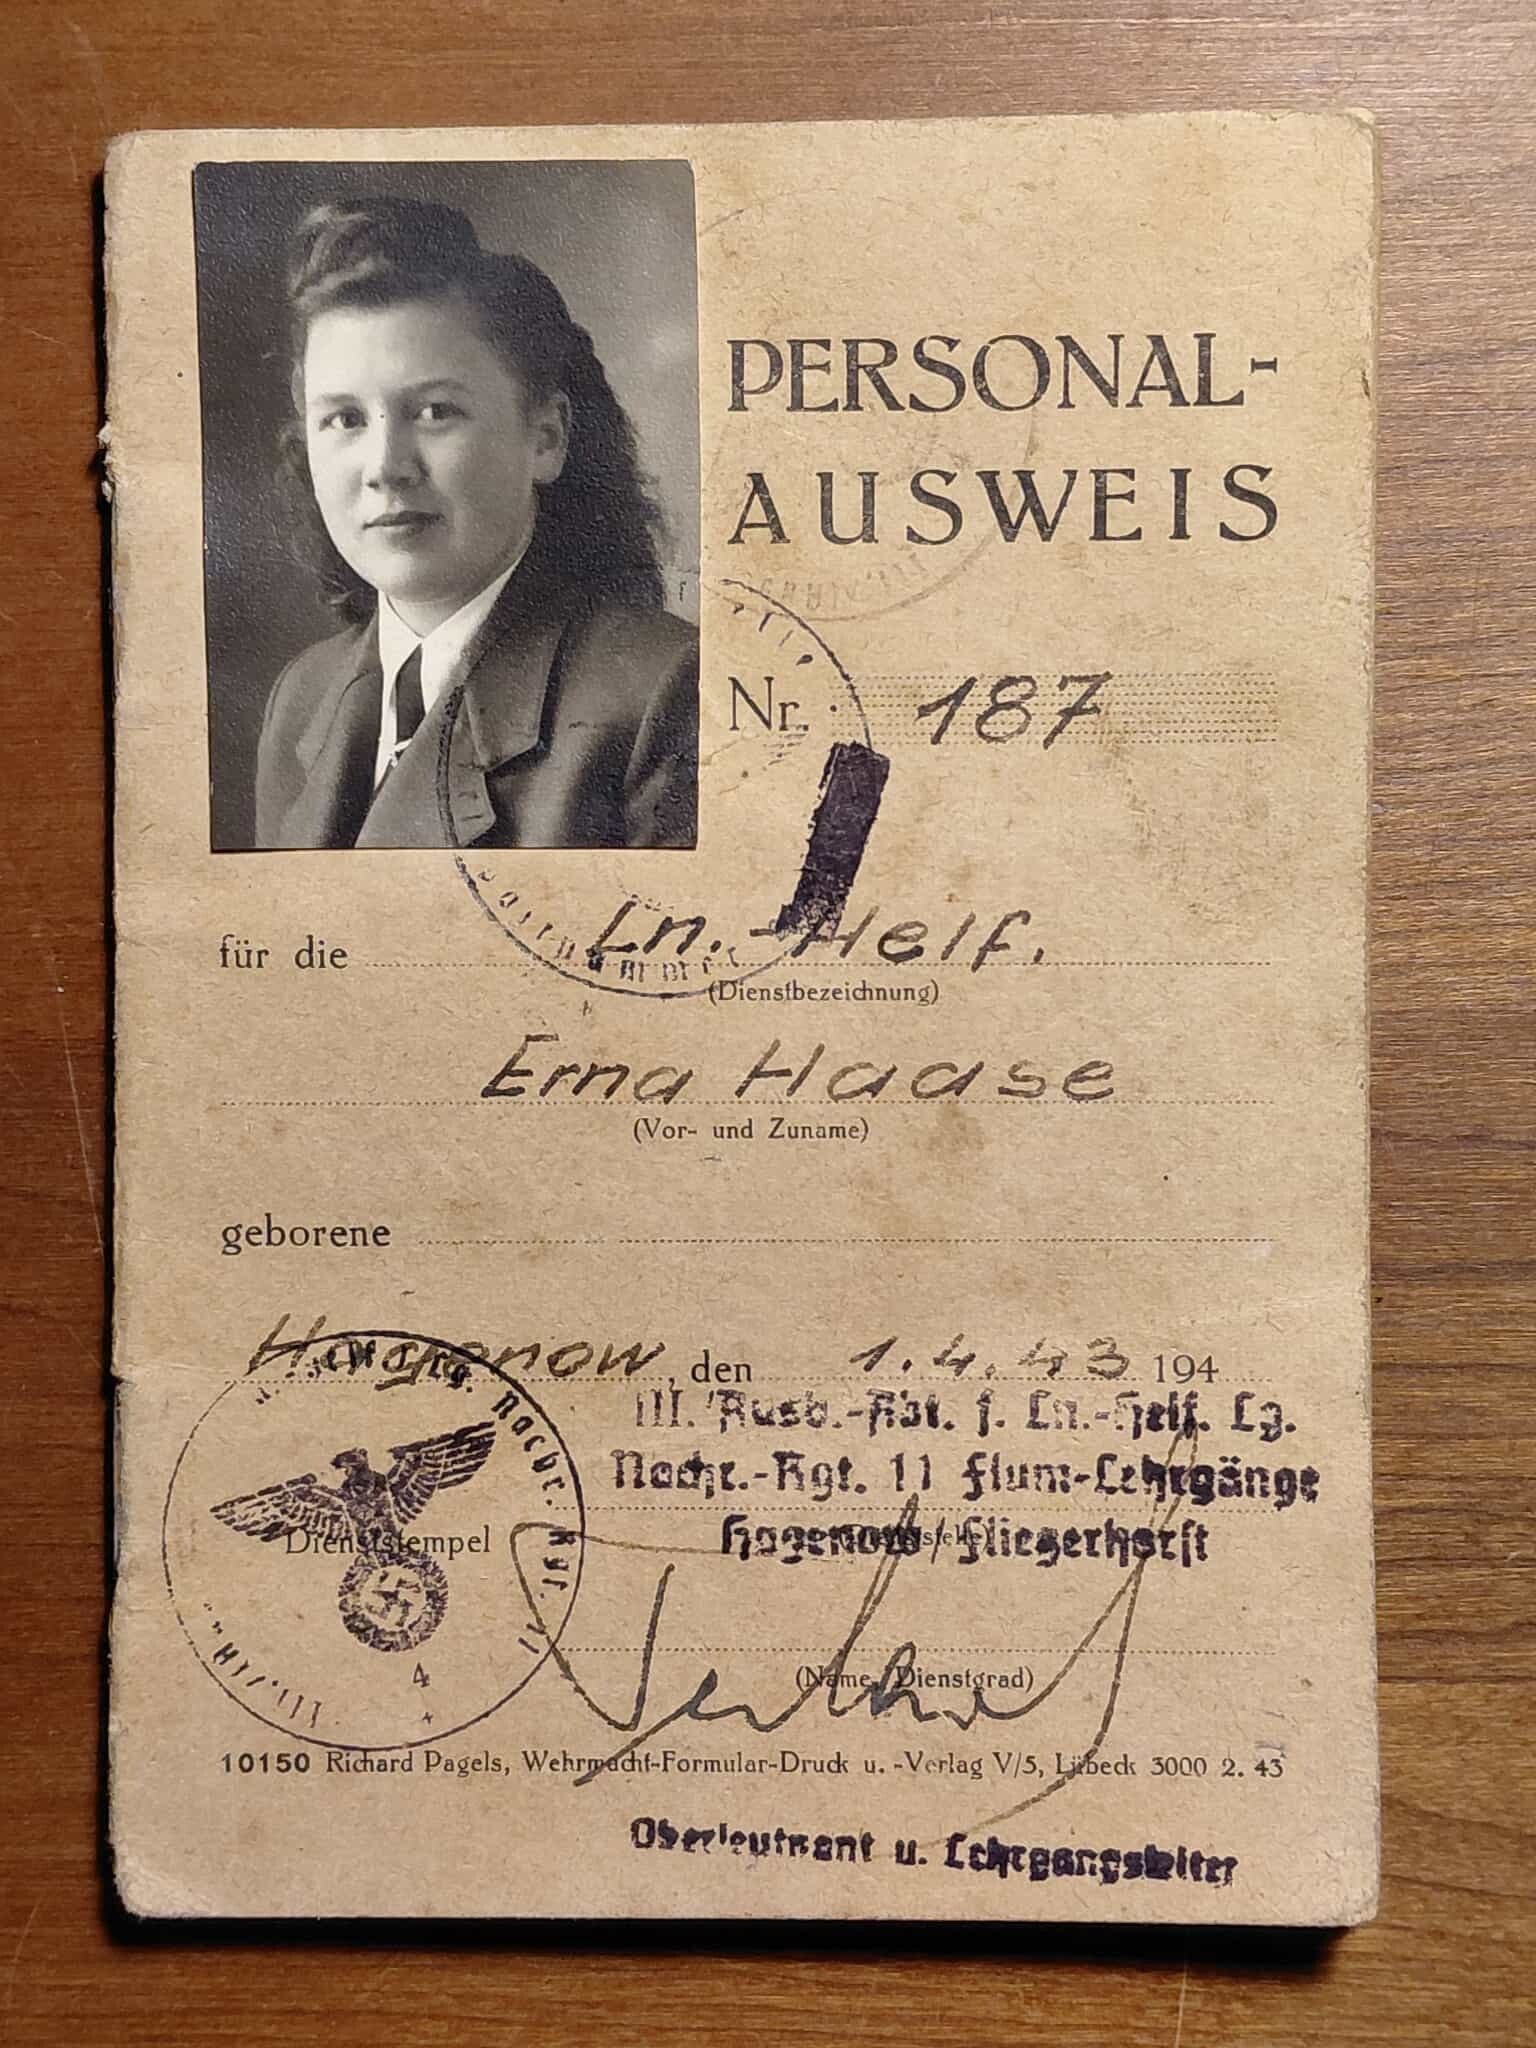 PERSONAL-
AUSWEIS
Nr. 187
für die Ln.-Helf.
(Dienstbezeichnung)
Erna Haase
(Vor- und Zuname)
geborene
Hagenow, den 1.4.43 194
III. Ausb.-Abt. f. Ln.-Helf. Lg.
Nachr.-Rgt. 11 Flum-Lehrgänge
Hagenow/Fliegerhorst
Dienststempel
Nachr. Rgt. 11
4
(Name, Dienstgrad)
10150 Richard Pagels, Wehrmacht-Formular-Druck u. -Verlag V/5, Lübeck 3000 2. 43
Oberleutnant u. Lehrgangsleiter